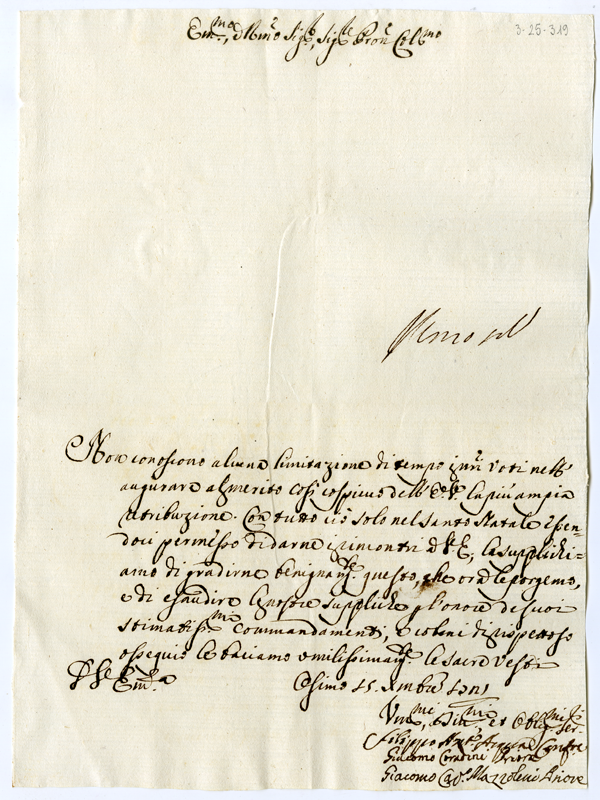 3-25-319
Em.mo, e R.mo Sig.re, Sig.re Pron Col.mo
Non conoscono alcuna limitazione di tempo i nri voti nell'
augurare al merito così cospicuo dell' E.V. la più ampia
retribuzione. Con tutto ciò solo nel Santo Natale essen=
doci permesso di darne i rimontri a V.E., la supplichi=
amo di gradirne benignam.te questo, che ora le porgemo,
e di esaudire le nostre suppliche p l'onore de suoi
stimatiss.mi commandamenti, e colmi di rispettoso
ossequio le baciamo umilissimam.te le sacre Vesti
Di V.E. Em.ma
Osimo 15. Xmbre
Um.mi, Div.mi et Oblig.mi Ser.
Filippo Ant.o Confre
Giacomo Corradini Priore
Giacomo Mazzoleni Priore